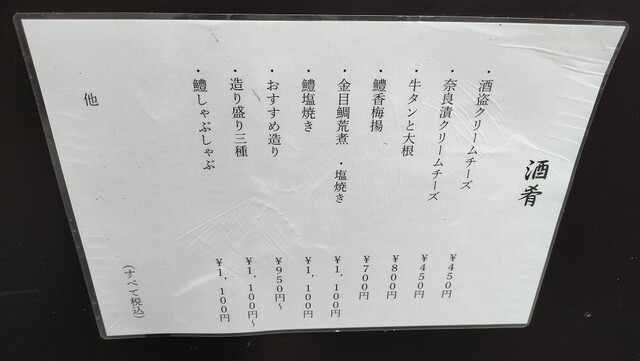 酒肴
・酒盗クリームチーズ ¥450円
・奈良漬クリームチーズ ¥450円
・牛タンと大根 ¥800円
・鱧香梅揚 ¥700円
・金目鯛荒煮 ・塩焼き ¥1,100円
・鱧塩焼き ¥1,100円
・おすすめ造り ¥950円～
・造り盛り三種 ¥1,100円～
・鱧しゃぶしゃぶ ¥1,100円
他
(すべて税込)